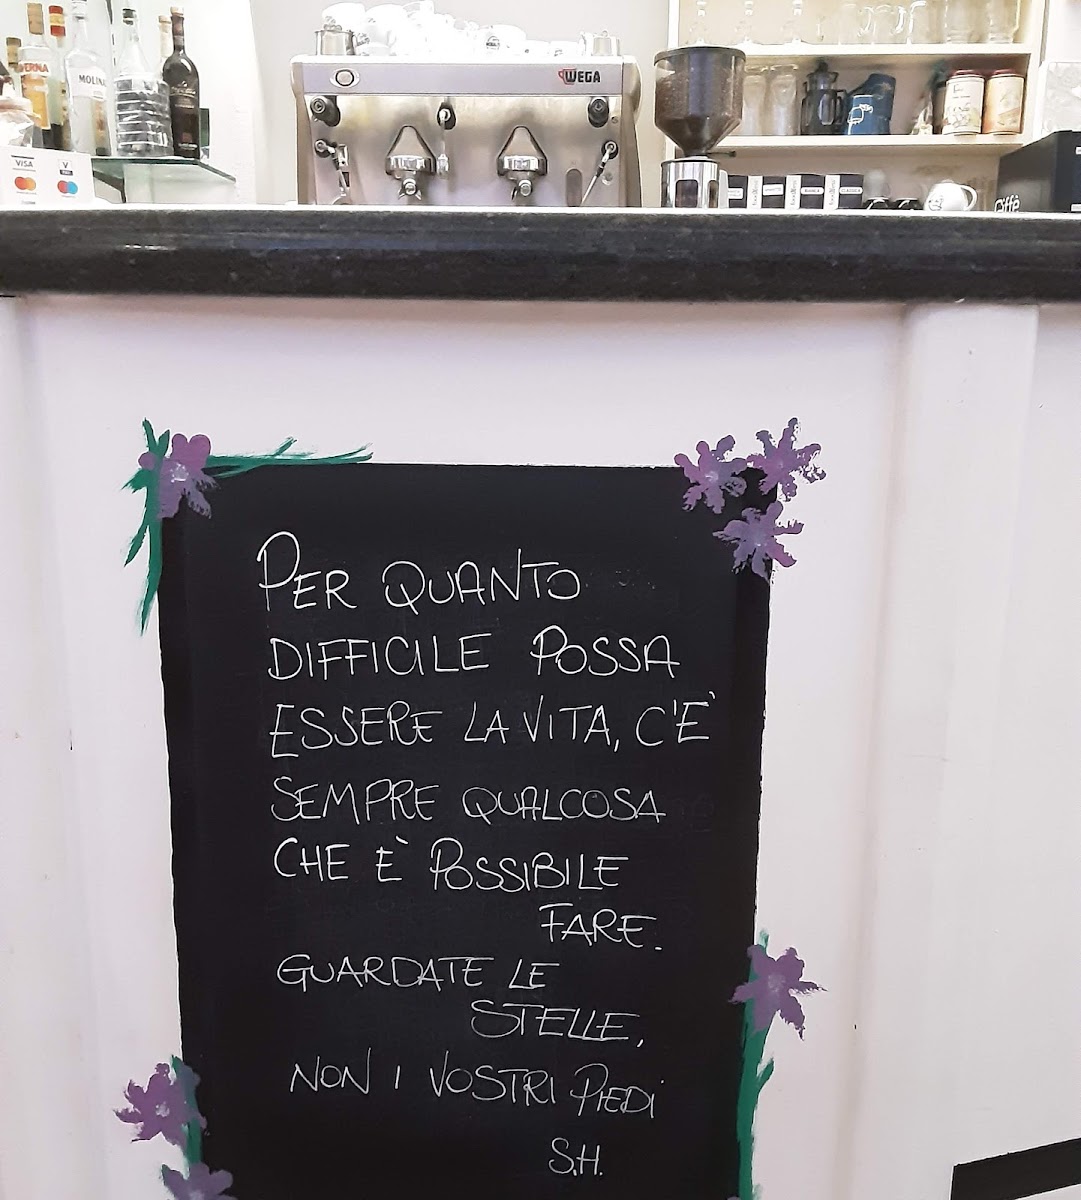 WEGA
MOLINA
VISA
Caffè
PER QUANTO
DIFFICILE POSSA
ESSERE LA VITA, C'È
SEMPRE QUALCOSA
CHE È POSSIBILE
FARE.
GUARDATE LE
STELLE,
NON I VOSTRI PIEDI
S.H.